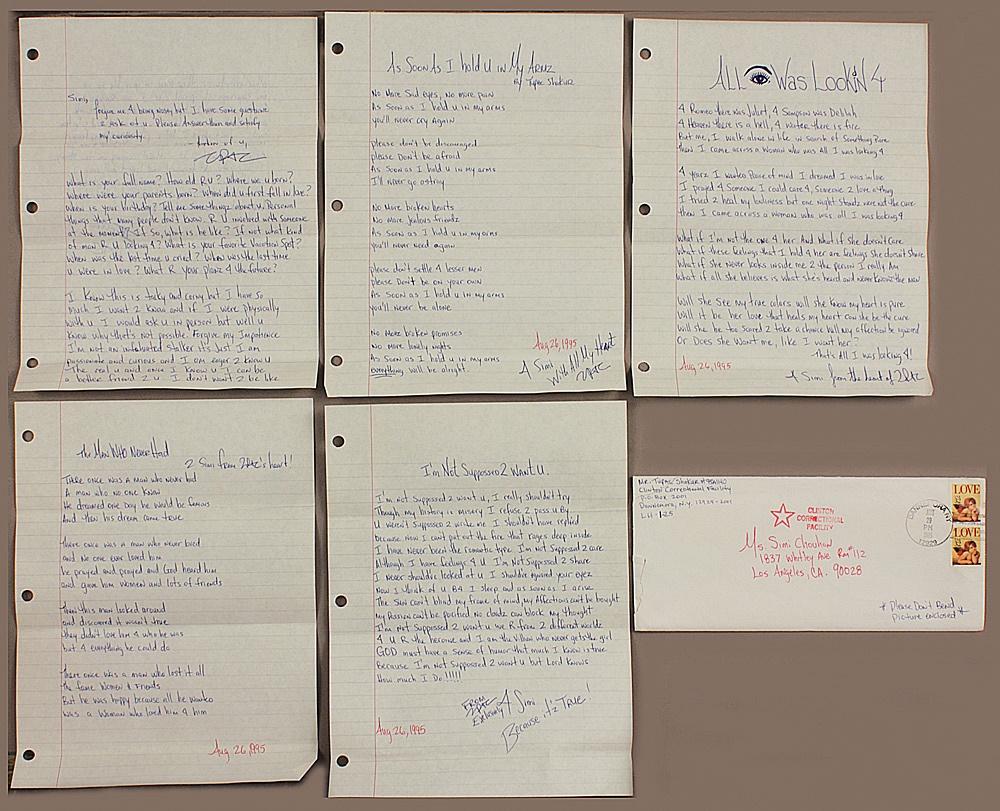 Simi,
forgive me 4 being nosey but I have some questions
2 ask of u. Please Answer them and satisfy
my curiosity.
2PAC
What is your full name? How old R U? Where were u born?
Where were your parents born? When did u first fall in love?
When is your birthday? Tell me some things about u. Personal
things that many people don't know. R U involved with someone
at the moment? If so, what is he like? If not what kind
of man R U looking 4? What is your favorite Vacation Spot?
When was the last time u cried? When was the last time
u were in love? What R your planz 4 the future?
I Know this is tacky and corny but I have so
much I want 2 Know and if I were physically
with u I would ask u in person but well u
Know why that's not possible. Forgive my Impatience
I'm not an infatuated stalker it's just I am
passionate and curious and I am eager 2 know u
The real u and once I know u I can be
a better friend 2 u. I don't want 2 be like
As Soon As I hold U in My Armz
By Tupac Shakur
No More Sad eyes, No more pain
As soon as I hold u in my arms
you'll never cry again
please don't be discouraged
please Don't be afraid
As soon as I hold u in my arms
I'll never go astray
No More broken hearts
No More jealous friendz
As soon as I hold u in my arms
you'll never need again
please don't settle 4 lesser men
please Don't be on your own
As soon as I hold u in my arms
you'll never be alone
No More broken promises
No more lonely nights
As soon as I hold u in my arms
everything will be alright.
Aug 26, 1995
4 Simi
With All My Heart
2PAC
ALL Was Lookin 4
4 Romeo there was Juliet, 4 Sampson was Delilah
4 Heaven there is a hell, 4 water there is fire
But me, I walk alone in life in search of Something Pure
then I came across a Woman who was All I was looking 4
4 yearz I wanted Peace of mind I dreamed I was in love
I prayed 4 Someone I could care 4, Someone 2 love a thug
I tried 2 heal my loneliness but one night standz were not the cure
then I came across a woman who was all I was looking 4
What if I'm not the one 4 her And what if she doesn't care
What if these feelings that I hold 4 her are feelings she doesn't share
What if she Never looks inside me 2 the person I really Am
What if all she believes is what she's heard and never Knows the man
Will she See my true colors will she know my heart is pure
Will it be her love that heals my heart can she be the cure
Will she be too scared 2 take a chance will my affection be ignored
Or Does she Want me, like I want her?
That's All I was looking 4!
Aug 26, 1995
4 Simi from the heart of 2PAC
The Man Who Never Had
2 Simi from 2PAC's heart!
There once was a man who never had
A man who no one Know
He dreamed one Day he would be famous
And then his dream came true
There once was a man who never cried
and No one ever loved him
he prayed and prayed and God heard him
and gave him women and lots of friends
Then this man looked around
and discovered it wasn't true
they didn't love him 4 who he was
but 4 everything he could do
There once was a man who lost it all
The fame Women & Friends
But he was happy because all he wanted
was a Woman who loved him 4 him
Aug 26, 1995
I'm Not Supposed 2 Want U.
I'm not Supposed 2 want u, I really shouldn't try
Though my history is misery I refuse 2 pass u By
U weren't Supposed 2 write me I shouldn't have replied
because Now I can't put out the fire that rages deep inside
I have Never been the romantic type. I'm Not Supposed 2 care
Although I have feelings 4 U I'm Not Supposed 2 Share
I Never should've looked at u I should've ignored your eyez
Now I think of u B4 I sleep and as soon as I arise
The Sun can't blind my frame of mind, my Affections can't be bought
my passion can't be purified No cloudz can block my thought
I'm Not Supposed 2 want u we R from 2 different worldz
4 U R the heroine and I am the Villian who never gets the girl
GOD must have a Sense of humor that much I know is true
Because I'm Not Supposed 2 want u but Lord Knows
How much I Do!!!!!
Aug 26, 1995
FROM
2PAC
Exclusively 4 Simi
Because it'z TRUE!
Mr. Tupac Shakur #95A1140
Clinton Correctional Facility
P.O. Box 2001
Dannemora, N.Y. 12929-2001
LH-1-25
CLINTON
CORRECTIONAL
FACILITY
PM
12929
LOVE
32
LOVE
32
Ms. Simi Chouhan
1837 Whitley Ave Rm#112
Los Angeles, CA. 90028
* Please Don't Bend *
Picture enclosed